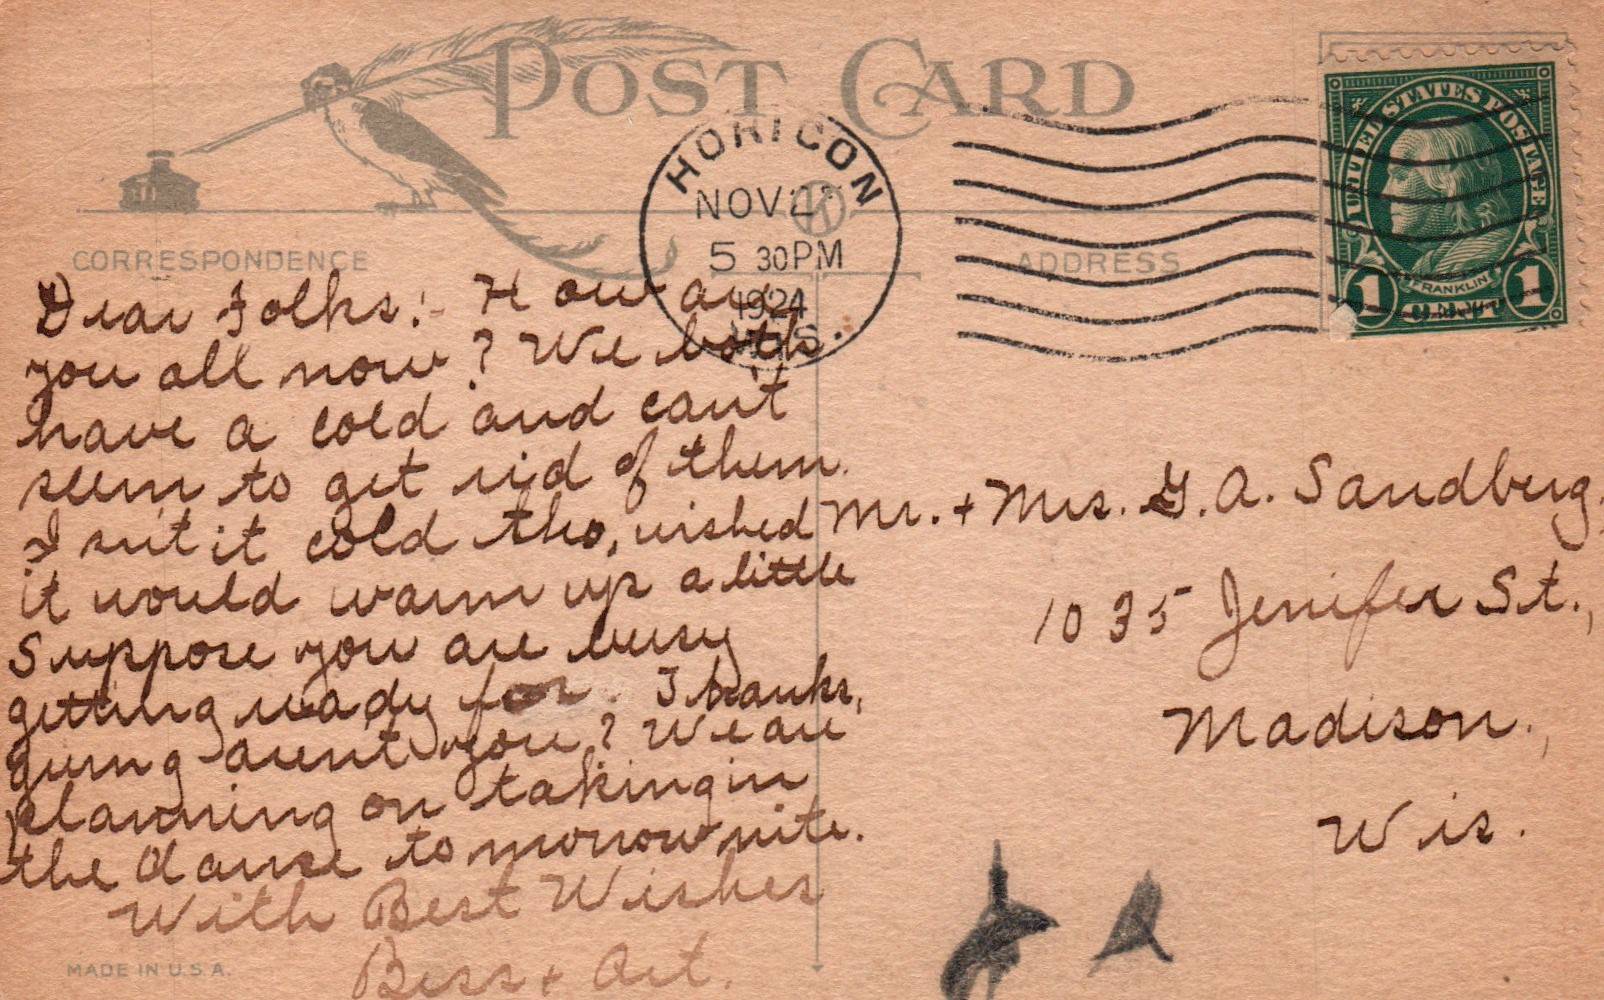 POST CARD
HORICON
NOV 2
5 30PM
1924
WIS.
UNITED STATES POSTAGE
FRANKLIN
1 CENT 1
CORRESPONDENCE
ADDRESS
Dear Folks:- How are
you all now? We both
have a cold and can't
seem to get rid of them.
I it cold tho, wished
it would warm up a little
Suppose you are busy
getting ready for Thanks,
giving arent you? We are
planning on taking in
the danse tomorrow nite.
With Best Wishes
Bess + Art.
Mr. + Mrs. G. A. Sandberg,
1035 Jenifer St.,
Madison.,
Wis.
MADE IN U.S.A.